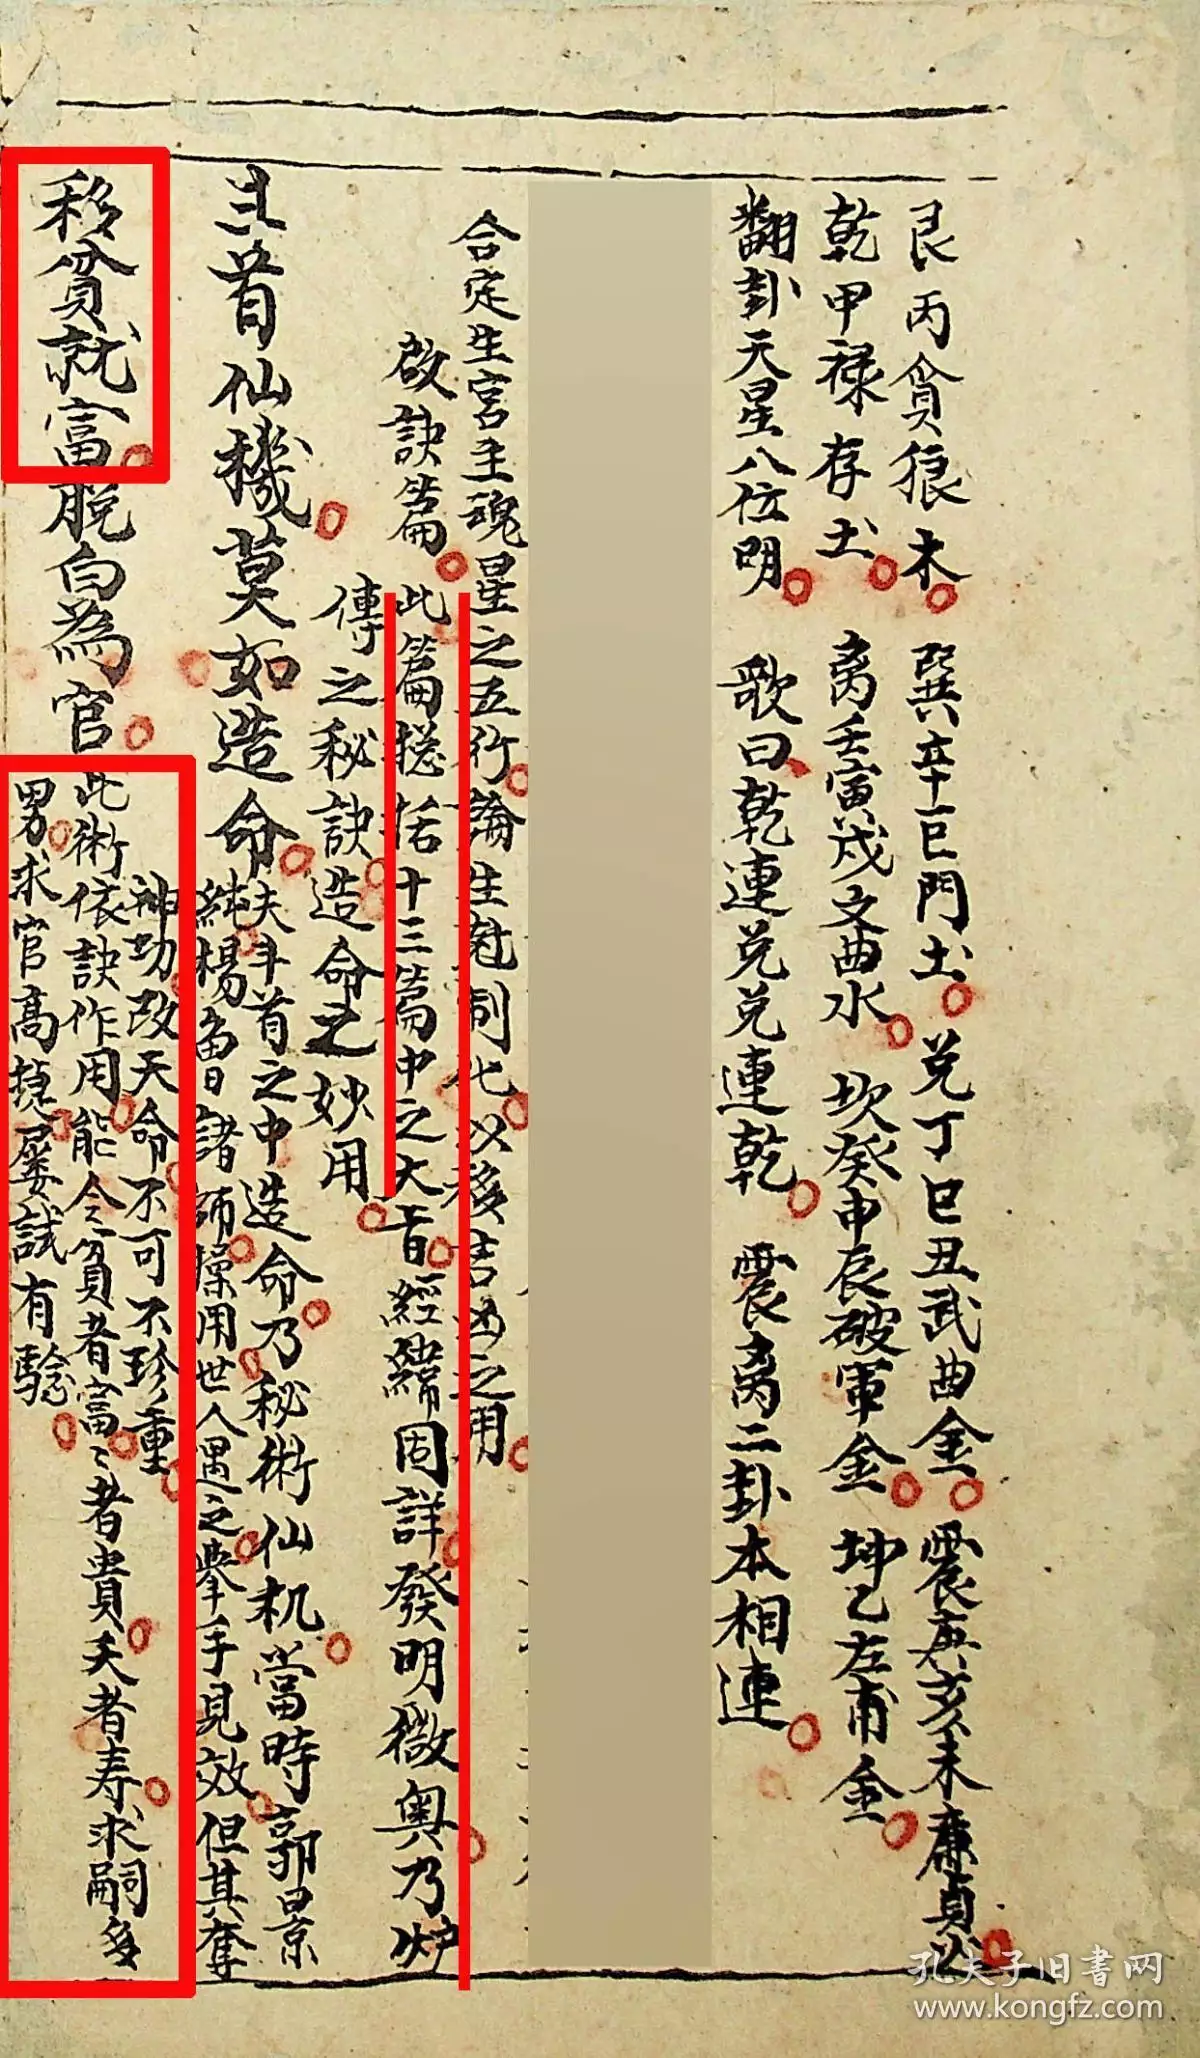 艮丙貪狼木 巽辛巨門土 兌丁巳丑武曲金 震庚亥未廉貞火
乾甲禄存土 离壬寅戌文曲水 坎癸申辰破軍金 坤乙左甫金
翻卦天星八位明 歌曰乾連兌兌連乾 震离二卦本相連
合定生宮主魂星之五行論生尅制化以移吉凶之用
啟訣篇 此篇捴括十三篇中之大旨經緯固詳發明微奥乃炉
傳之秘訣造命之妙用
斗首仙機莫如造命 夫斗首之中造命乃秘術仙机當時郭景
純楊曾諸師操用世人遇之舉手見效但其奪
神功改天命不可不珍重
移貧就富脱白為官 此術依訣作用能令貧者富〻者貴夭者寿求嗣多
男求官高㨗屡試有驗
孔夫子旧書网
www.kongfz.com